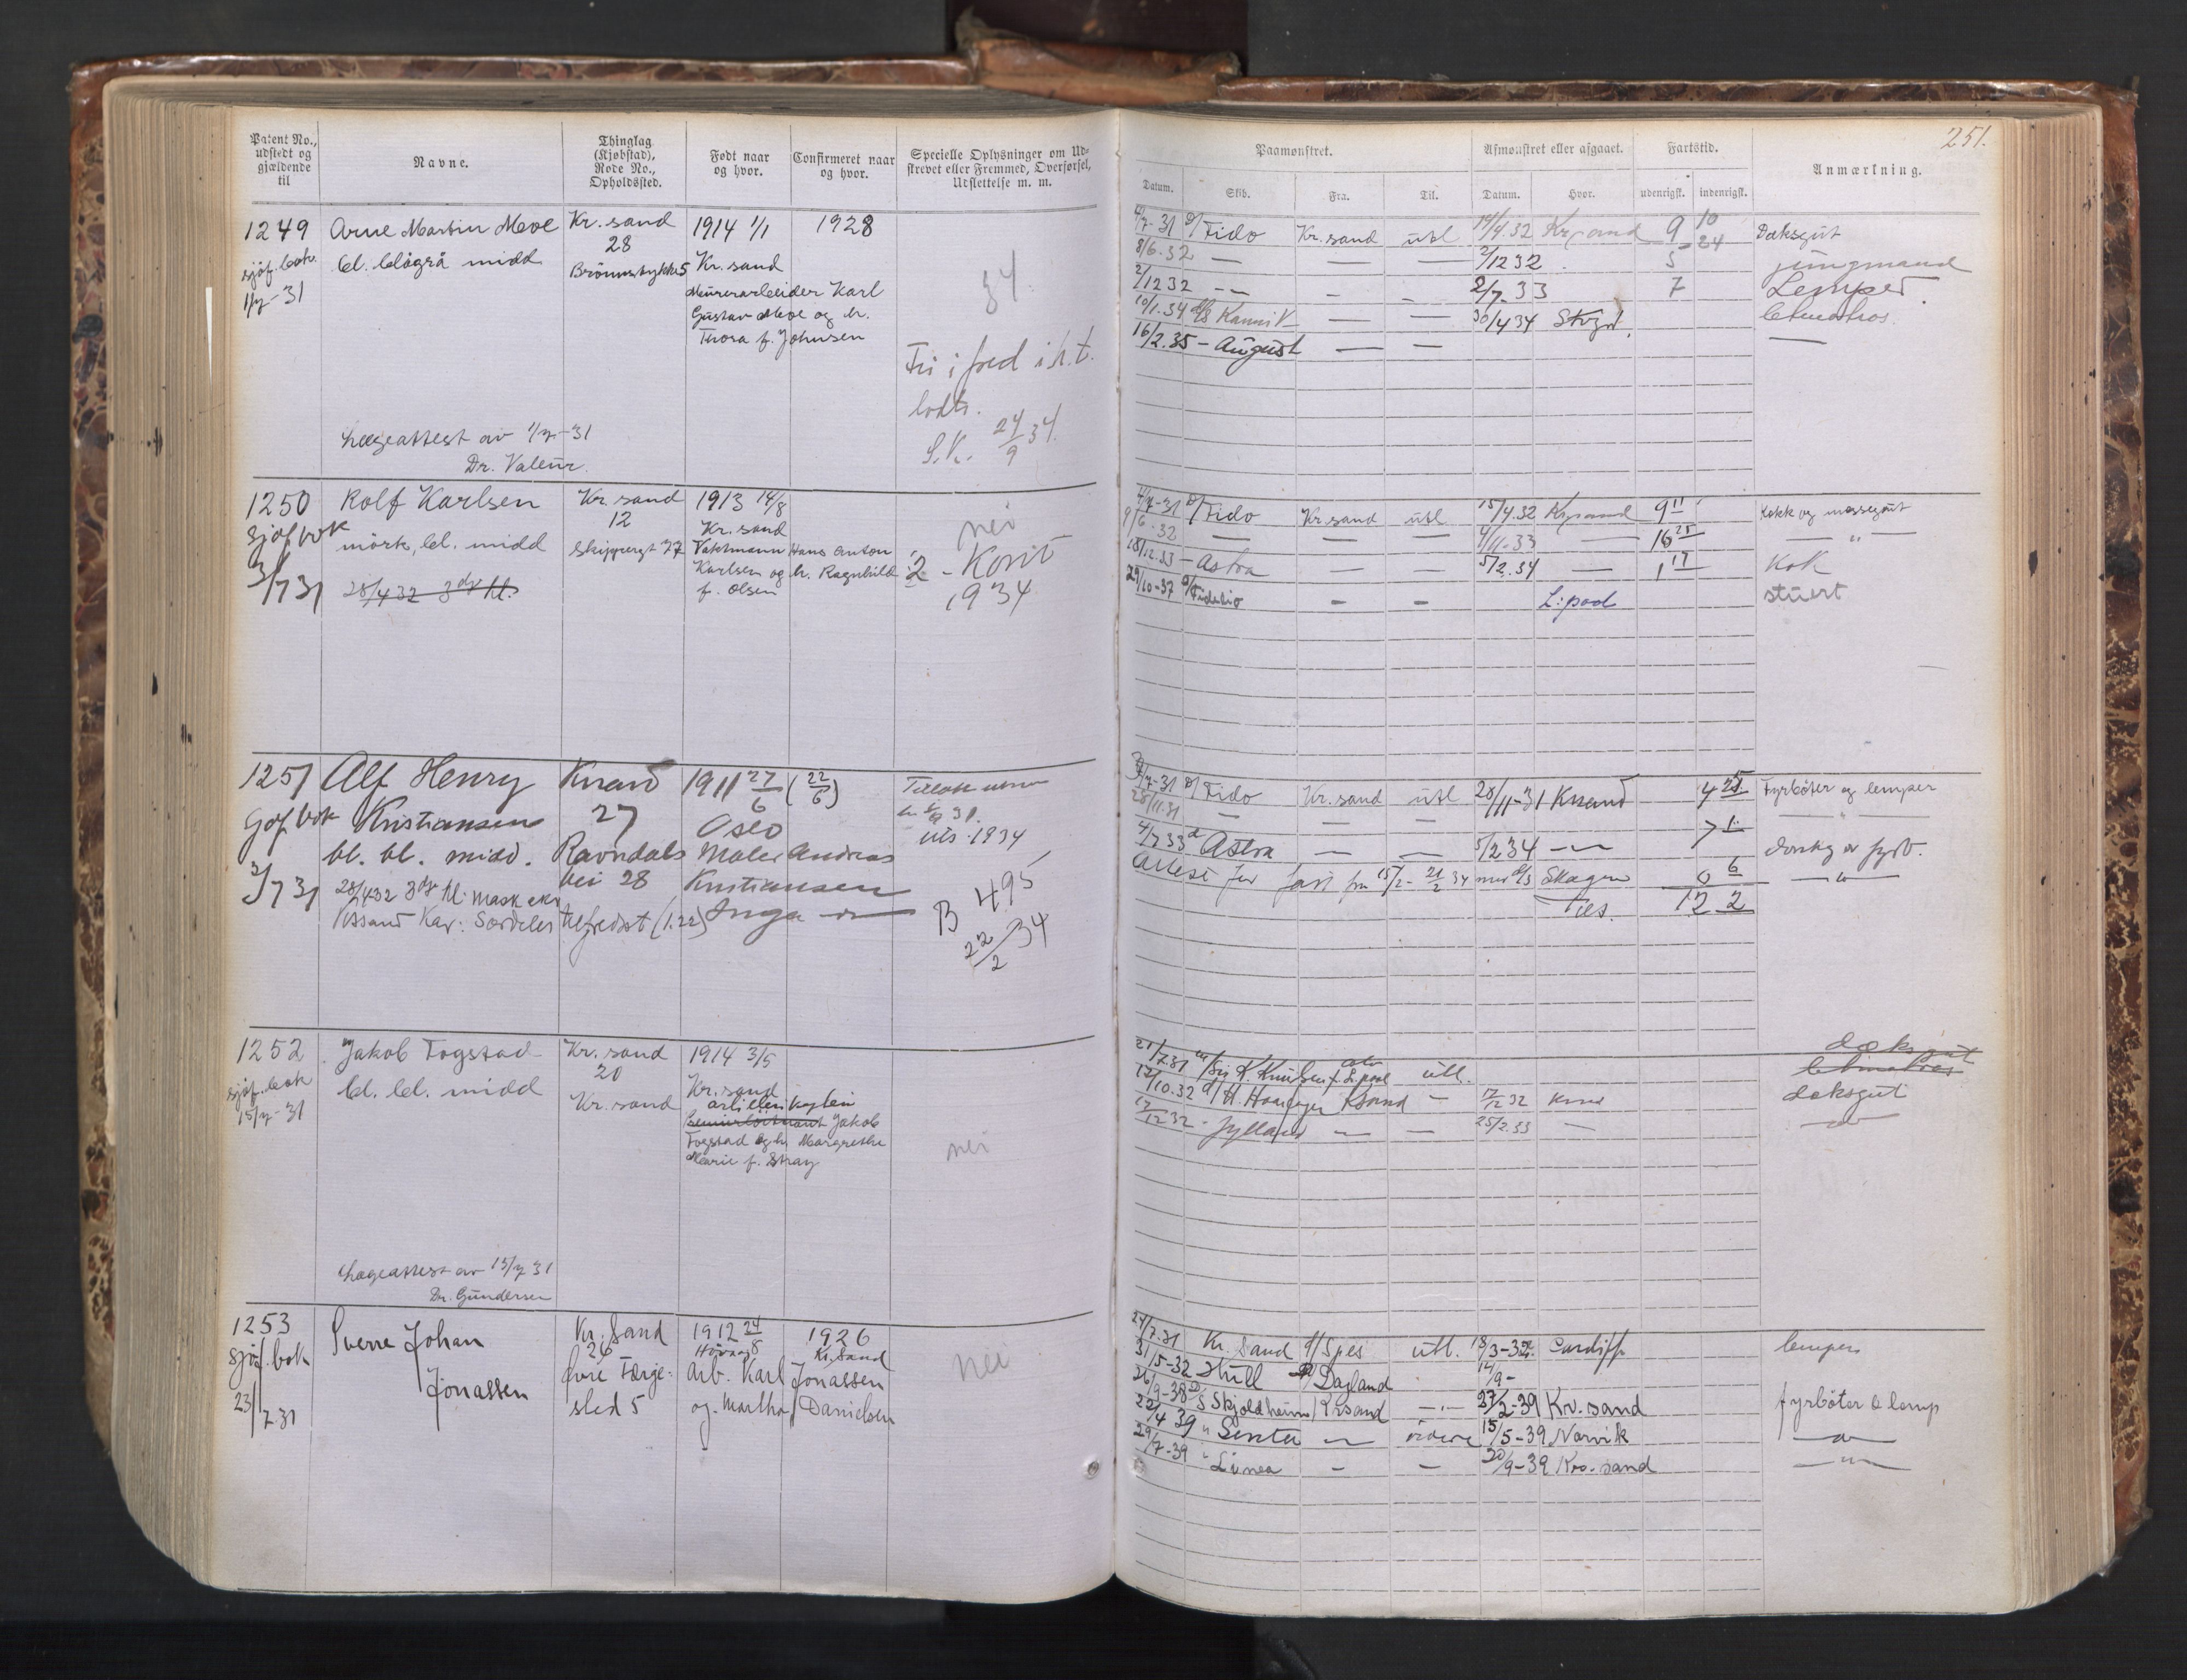 Patent No., udstedt og gjældende til
Navne.
Thinglag (Kjøbstad), Rode No., Opholdssted.
Født naar og hvor.
Confirmeret naar og hvor.
Specielle Oplysninger om Udskrevet eller Fremmed, Overførsel, Udslettelse m. m.
1249 Arne Martin Moe Kr. sand 1914 1/1 1928
28
sjøf. bok bl. blågrå midd Brönnstykket 5 Kr. sand
1/7-31 Murerarbeider Karl
Gustav Moe og h.
Thora f. Johnsen
34
Fri i fred i h.t.
lodtr.
S.K. 24/9 34
Lægeattest av 1/7-31
Dr. Valeur.
1250 Rolf Karlsen Kr. sand 1913 14/8
12
sjøf bok mörk, bl. midd Skippergt 77 Kr. sand
Vaktmann Hans Anton
3/7 31 28/4 32 3dr kl. Karlsen og h. Ragnhild
f. Olsen
nei
2 - Korit
1934
1251 Alf Henry Krsand 1911 27/6 (22/6)
Kristiansen 27 Oslo
bl. bl. midd. Ravndals Maler Andreas
3/7 31 vei 28 Kristiansen
28/4 32 3dr kl. mask eks
Krssand Kar: Særdeles tilfredst (1.22) Inga
uts. 1934
B 495
22/2 34
1252 Jakob Fogstad Kr. sand 1914 3/5
20
sjøf. bok bl. bl. midd Kr. sand Kr. sand
15/7-31 artillerikaptein
Premierløitnant Jakob
Fogstad og h. Margrethe
Marie f. Stray
nei
Lægeattest av 15/7 31
Dr. Gundersen
1253 Sverre Johan Kr. Sand 1912 24/8 1926
26 Hövåg Kr. Sand
sjöf. bok Jonassen Øvre Færge- Arb. Karl Jonassen
23/7 31 sted 5 og Martha Danielsen
nei
251.
Paamønstret. Afmønstret eller afgaaet. Fartstid. Anmærkning.
Datum. Skib. Fra. Til. Datum. Hvor. udenrigsk. indenrigsk.
4/7-31 D/ Fido Kr. sand utl 14/4.32 Krsand 9 10 Dæksgut
8/6.32 — — — 2/12 32 5 24 jungmand
2/12 32 — — — 2/7-33 7 Lemper.
10/1.34 — — 30/4 34 letmatros
16/2.35 - August — — —
4/7-31 D/ Fido Kr. sand utl 15/4.32 Krsand 9 11 Kokk og messegut
9/6-32 — — — 4/11-33 — 16 25 — " —
28/12.33 - Astra — — 5/2.34 — 1 17 Kok
29/10-37 D/ Fidelio — — L:pool stuert
3/7-31 D/ Fido Kr. sand utl 28/11-31 Krsand 4 25 Fyrböter og lemper
28/11.31 — — — — " —
4/7 33 d Astra — — 5/2 34 — donkey & fyrb.
Attest for fart fra 15/2 - 21/2 34 med D/S Skagen 0 6 — " —
Tils. 12 2
dæksgut
21/7.31 m/ Sir K. Knudsen f. L.pool utl. letmatros
12/10.32 d/ H. Krsand — 17/12 32 Krsd dæksgut
17/12 32 - Jylland — — 25/2.33 —
24/7.31 Kr. Sand d/ Spes utl. 18/3-32 Cardiff lemper
31/5-32 Hull D/ Dagland 14/9 -
26/9-38 D/S Skjoldheim Krsand —"— 27/2-39 Kr. sand fyrböter & lemp
22/4 39 " Senta — videre 15/5-39 Narvik — " —
29/7-39 " Linea — — 20/9-39 Krs. sand — " —